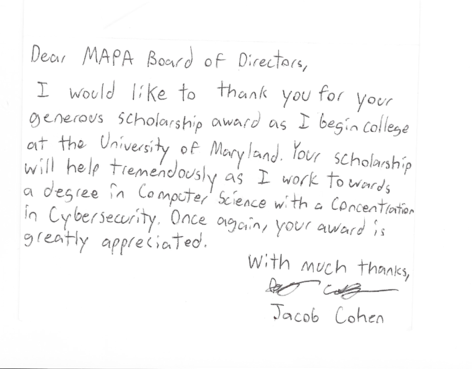 Dear MAPA Board of Directors,
I would like to thank you for your
generous scholarship award as I begin college
at the University of Maryland. Your scholarship
will help tremendously as I work towards
a degree in Computer Science with a Concentration
in Cybersecurity. Once again, your award is
greatly appreciated.
With much thanks,
Jacob Cohen